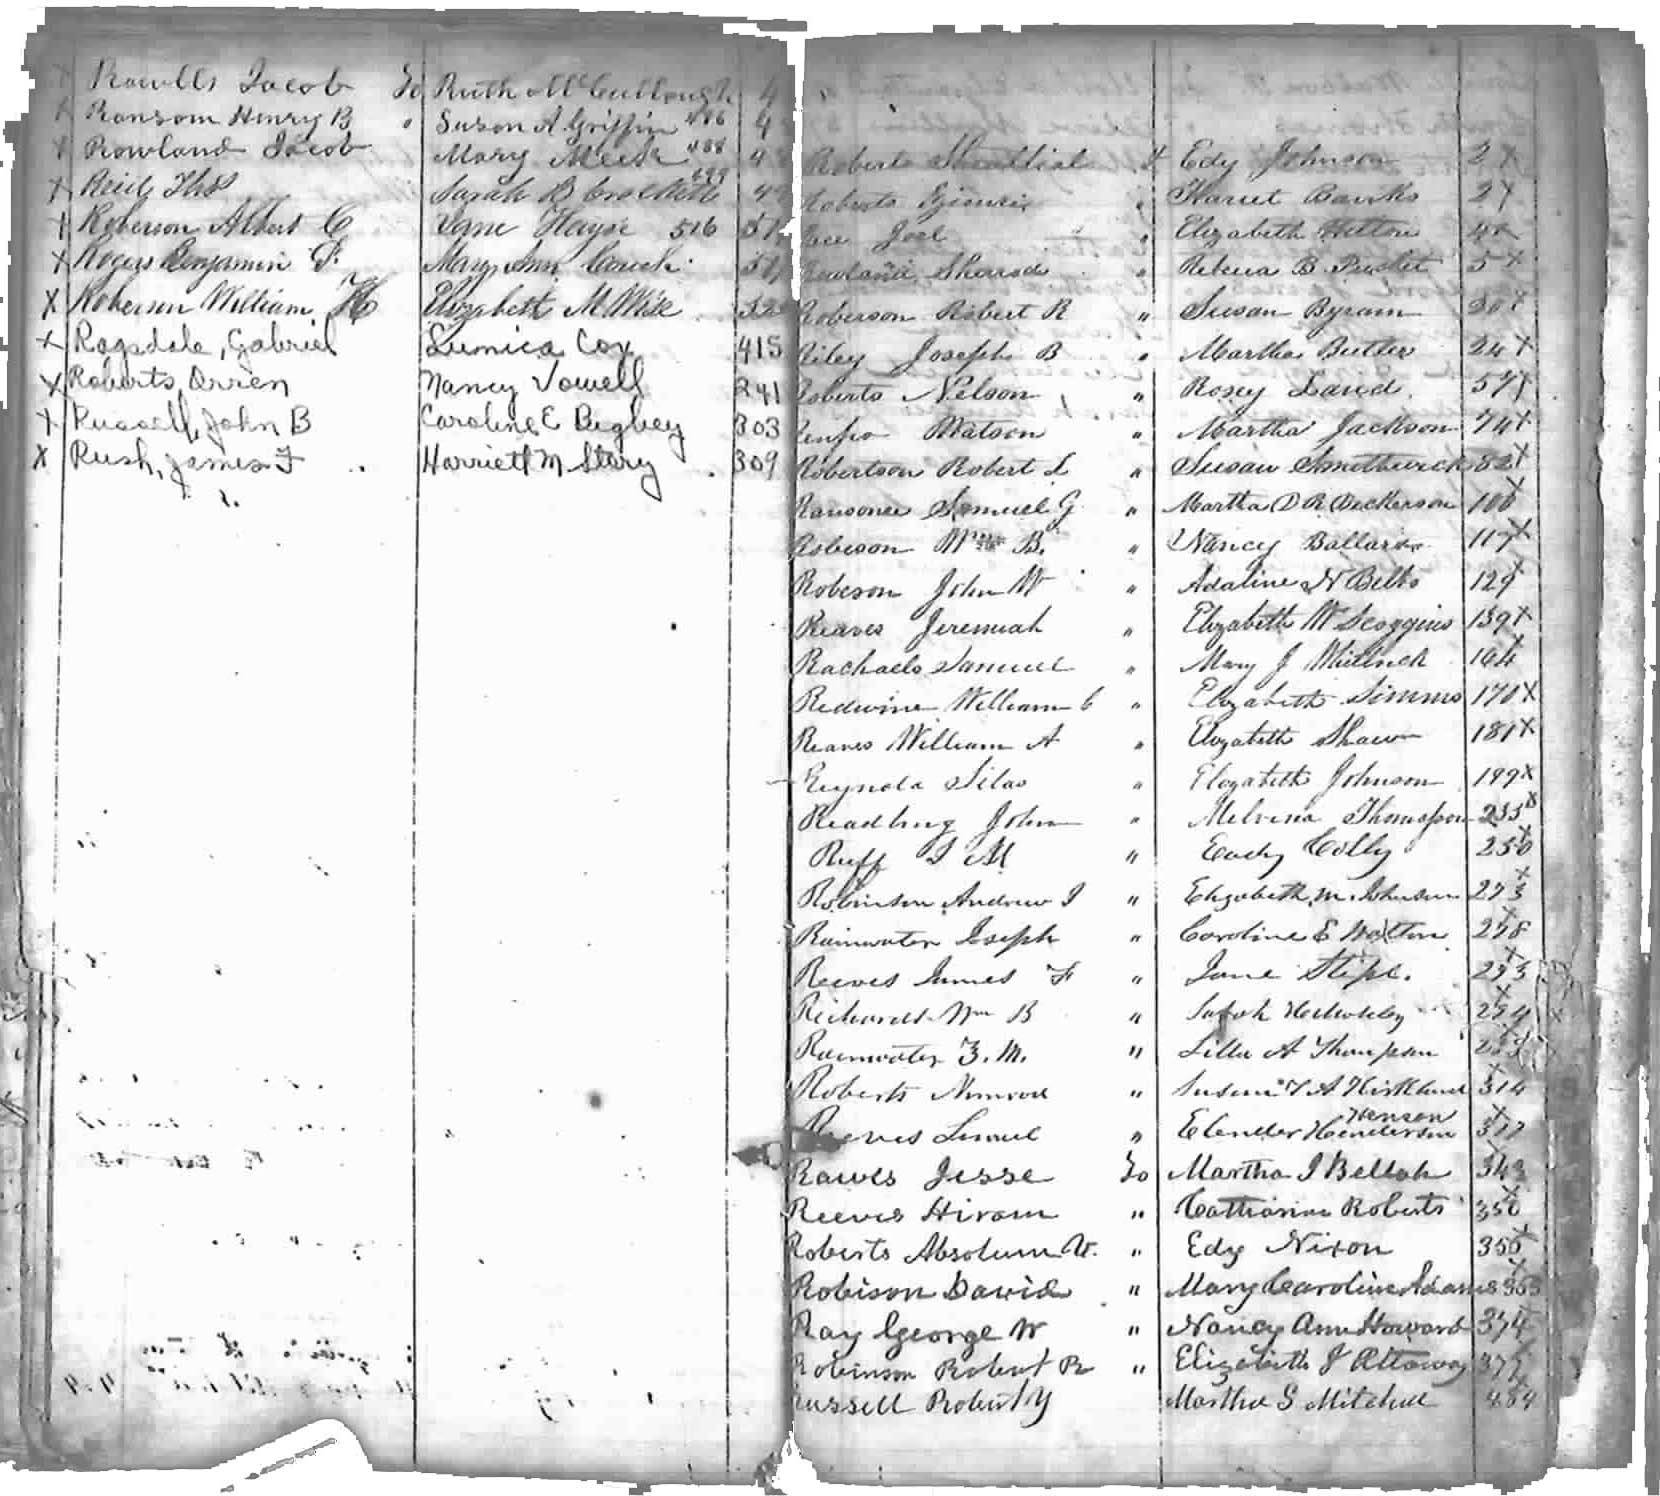 x Rawlls Jacob To Ruth McCullough 4
x Ransom Henry B " Susan A Griffin 486 4
x Rowland Jacob Mary Meek 488 4
x Reid Thos Sarah B Crockett 499 49
x Roberson Albert C Jane Hayse 516 51
x Rogers Benjamin F. Mary Ann Couch
x Roberson William H Elizabeth M Wise 32
x Ragsdale, Gabriel Lumica Cox 415
x Roberts, Orren Nancy Vowell 241
x Russell, John B Caroline E Bigbey 303
x Rush, James F Harriett M Story 309
Roberts Edy Johnson 2 x
Roberts Harriet Banks 2 x
Joel " Elizabeth Hilton 4 x
Rowland Sherrod " Rebecca B 5 x
Roberson Robert R " Susan Byram 20 x
Riley Joseph B " Martha Butler 24 x
Roberts Nelson " Rosey Laird 57 x
Renfro Watson " Martha Jackson 74 x
Robertson Robert L " Susan Smothwick 82 x
Ransone Samuel G " Martha D R Dickerson 100 x
Robeson Wm B. " Nancy Ballard 117 x
Robeson John W " Adaline N Belks 129 x
Reaves Jeremiah " Elizabeth W Scoggins 139 x
Rachaels Samuel " Mary J 164 x
Redwine William C " Elizabeth Simms 170 x
Reaves William A " Elizabeth Shaw 181 x
Reynolds Silas " Elizabeth Johnson 199 x
Readling John " Melvina Thomason 233 x
Ruff S M " Eady Colly 250 x
Robinson Andrew J " Elizabeth M. Johnson 273 x
Rainwater Joseph " Caroline E Walton 278 x
Reeves James F " Jane Stipe. 293 x
Richards Wm B " Sarah 294 x
Rainwater Z. M. " Lilla A Thompson
Roberts Nimrod " Susan T A Kirkland 314 x
Henson
Reeves Lemuel " Elender Henderson x
Rawls Jesse To Martha J Bellah 343
Reeves Hiram " Catharine Roberts 350 x
Roberts Absolum W. " Edy Nixon 356 x
Robison David " Mary Caroline Adams 363 x
Ray George W " Nancy Ann Howard 374
Robinson Robert R " Elizabeth J Attaway 377
Russell Robert Y Martha S Mitchell 484